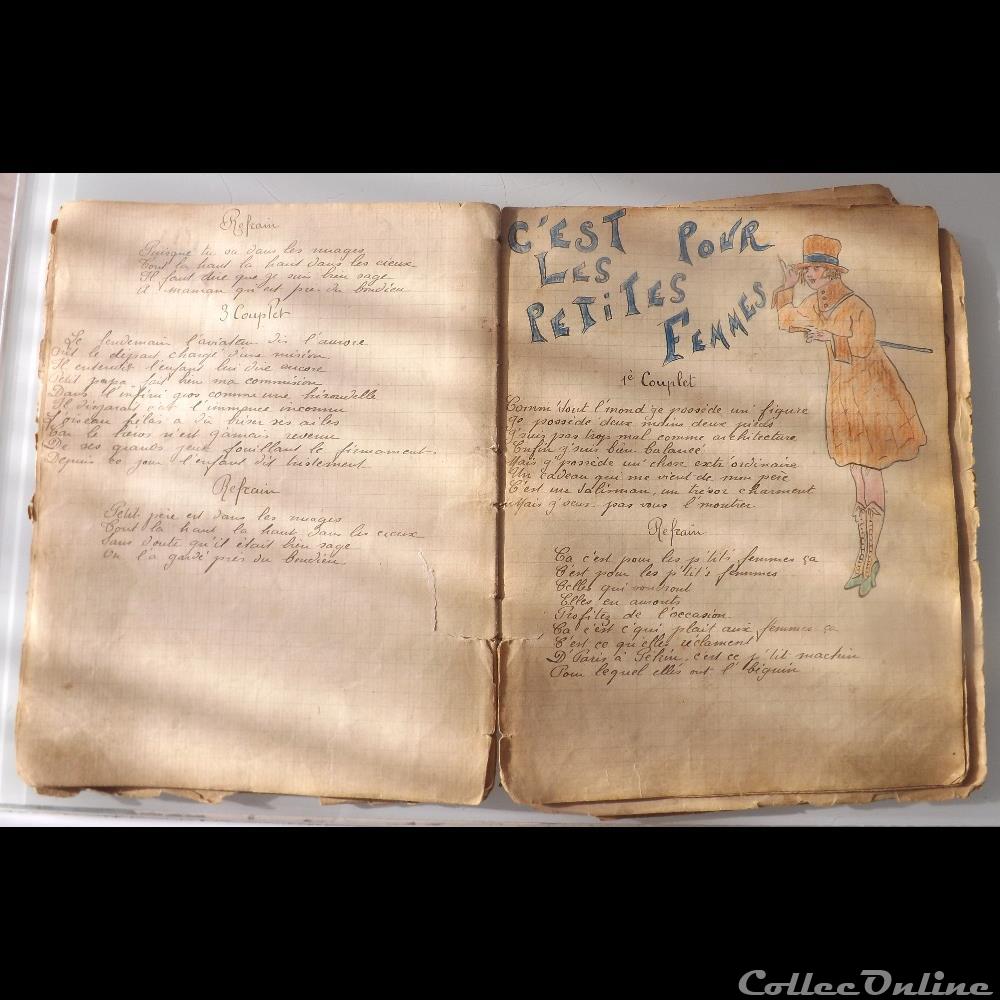 Refrain
Puisque tu va dans les nuages
Tout la haut la haut dans les cieux
Il faut dire que je suis bien sage
A maman qui est pres du bondieu
3 Couplet
Le lendemain l'aviateur dès l'aurore
le départ chargé d'une mision
Il entendit l'enfant lui dire encore
Petit papa fait bien ma commision
Dans l'infini gros comme une hirondelle
Il disparait c'est l'immence inconnu
L'oiseau hélas a dû briser ses ailes
Car le héros n'est jamais revenu
De ses grands yeux fouillant le firmament
Depuis ce jour l'enfant dit tristement
Refrain
Petit père est dans les nuages
Tout la haut la haut dans les cieux
Sans doute qu'il était bien sage
On l'a gardé près du bondieu
C'EST POUR
LES
PETITES FEMMES
1è Couplet
Comm' tout l'mond je possède un figure
Je possède deux mains deux pieds
J'suis pas trop mal comme architecture
Enfin j'suis bien balancé
Mais j'possède un' chose extr'ordinaire
Un cadeau qui me vient de mon père
C'est un talisman, un trésor charment
Mais j'veux pas vous l'montrer
Refrain
Ca c'est pour les p'tit's femmes ça
C'est pour les p'tit's femmes
Celles qui voudront
Elles en auronts
Profitez de l'occasion
Ca c'est c'qui plait aux femmes ça
C'est ce qu'elles réclament
D'Paris à Pékin, c'est ce p'tit machin
Pour lequel elles ont l'béguin
CollecOnline